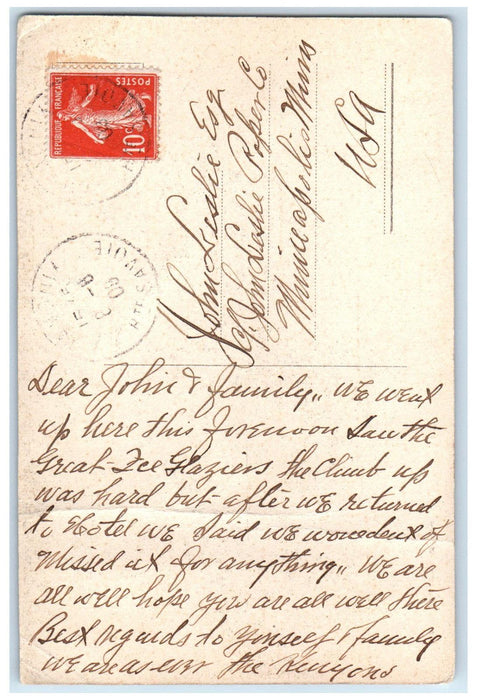 REPUBLIQUE FRANÇAISE
POSTES
10c
John Leslie Esq
c/o John Leslie Paper Co
Minneapolis Minns
USA
HTE SAVOIE
Dear John & family,, WE went
up here this forenoon Saw the
Great Ice Glaziers the Climb up
was hard but after WE returned
to Hotel WE Said WE wouldent of
Missed it for anything,, WE are
all well hope you are all well there
Best regards to yinself & family
WE are as ever the Kenyons